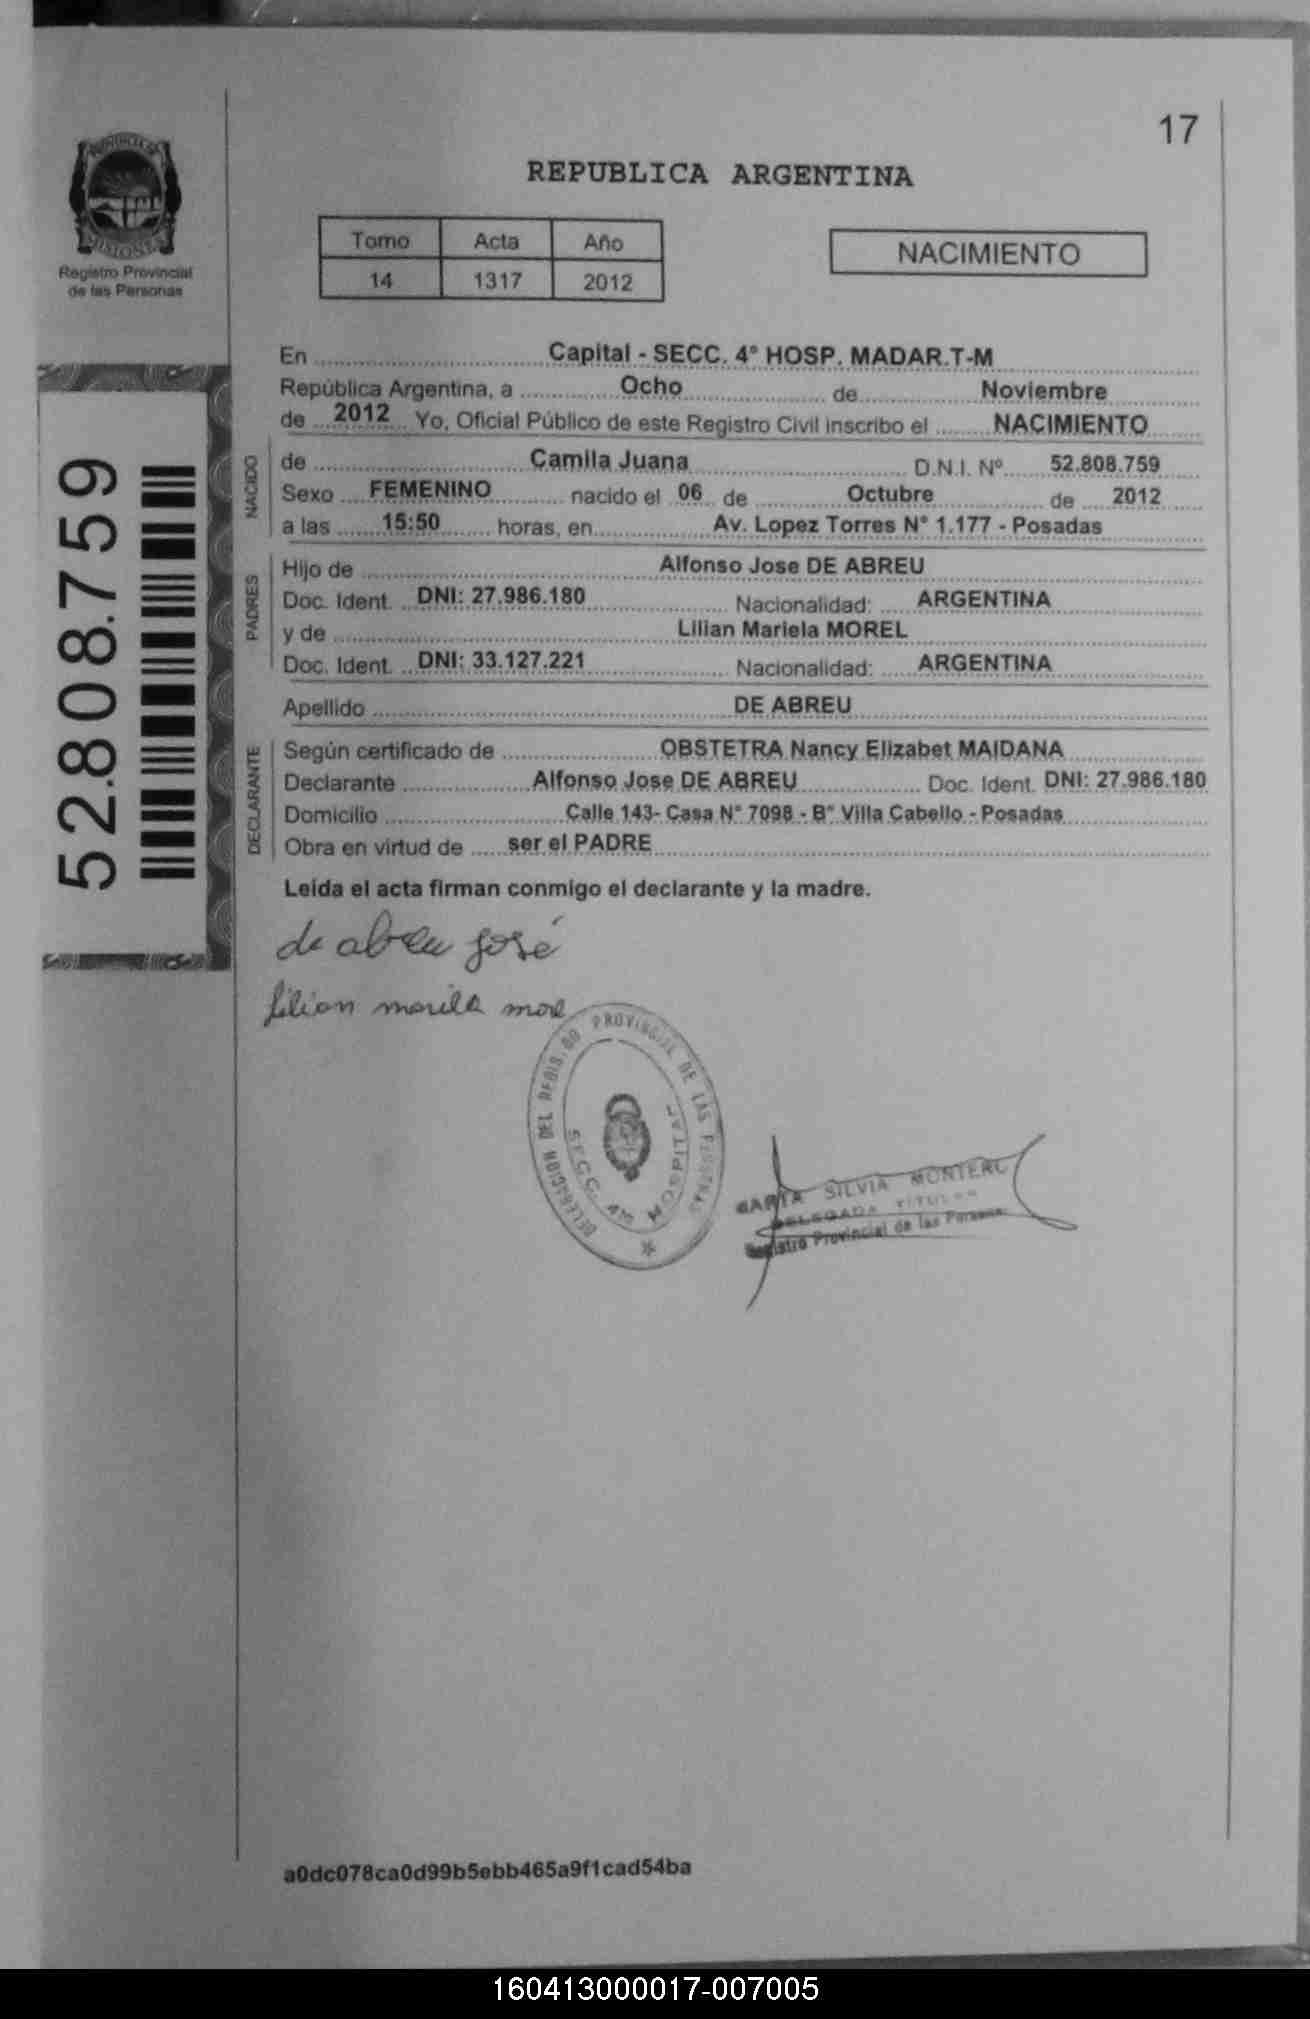 17
PROVINCIA DE
MISIONES
Registro Provincial
de las Personas
REPUBLICA ARGENTINA
Tomo Acta Año
14 1317 2012
NACIMIENTO
52.808.759
En Capital - SECC. 4° HOSP. MADAR.T-M
República Argentina, a Ocho de Noviembre
de 2012 Yo, Oficial Público de este Registro Civil inscribo el NACIMIENTO
NACIDO
de Camila Juana D.N.I. Nº 52.808.759
Sexo FEMENINO nacido el 06 de Octubre de 2012
a las 15:50 horas, en Av. Lopez Torres N° 1.177 - Posadas
PADRES
Hijo de Alfonso Jose DE ABREU
Doc. Ident. DNI: 27.986.180 Nacionalidad: ARGENTINA
y de Lilian Mariela MOREL
Doc. Ident. DNI: 33.127.221 Nacionalidad: ARGENTINA
Apellido DE ABREU
DECLARANTE
Según certificado de OBSTETRA Nancy Elizabet MAIDANA
Declarante Alfonso Jose DE ABREU Doc. Ident. DNI: 27.986.180
Domicilio Calle 143- Casa N° 7098 - B° Villa Cabello - Posadas
Obra en virtud de ser el PADRE
Leida el acta firman conmigo el declarante y la madre.
de abreu josé
lilian mariela morel
DELEGACION DEL REGISTRO PROVINCIAL DE LAS PERSONAS
SECC. 4ta HOSPITAL
SILVIA MONTERO
DELEGADA TITULAR
Registro Provincial de las Personas
a0dc078ca0d99b5ebb465a9f1cad54ba
160413000017-007005